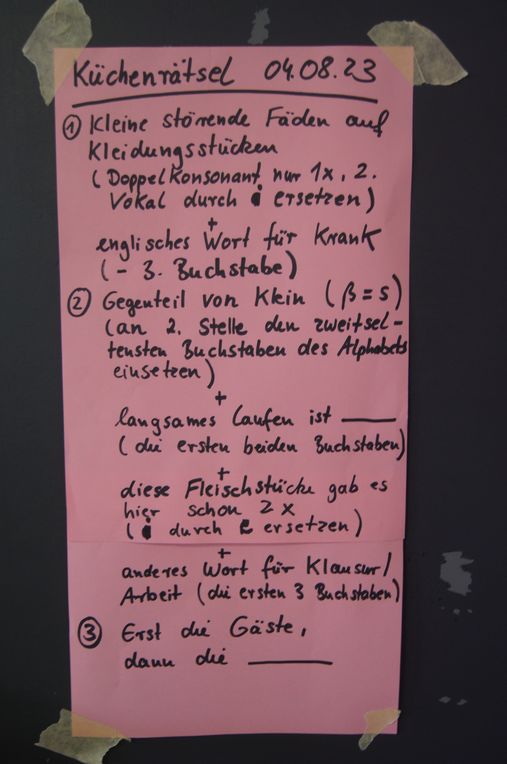 Küchenrätsel 04.08.23
① Kleine störende Fäden auf
Kleidungsstücken
(Doppelkonsonant nur 1x, 2.
Vokal durch i ersetzen)
+
englisches Wort für Krank
(- 3. Buchstabe)
② Gegenteil von Klein (ß = s)
(an 2. Stelle den zweitsel-
tensten Buchstaben des Alphabets
einsetzen)
+
langsames Laufen ist ____
(die ersten beiden Buchstaben)
+
diese Fleischstücke gab es
hier schon 2x
(i durch e ersetzen)
+
anderes Wort für Klausur/
Arbeit (die ersten 3 Buchstaben)
③ Erst die Gäste,
dann die ____